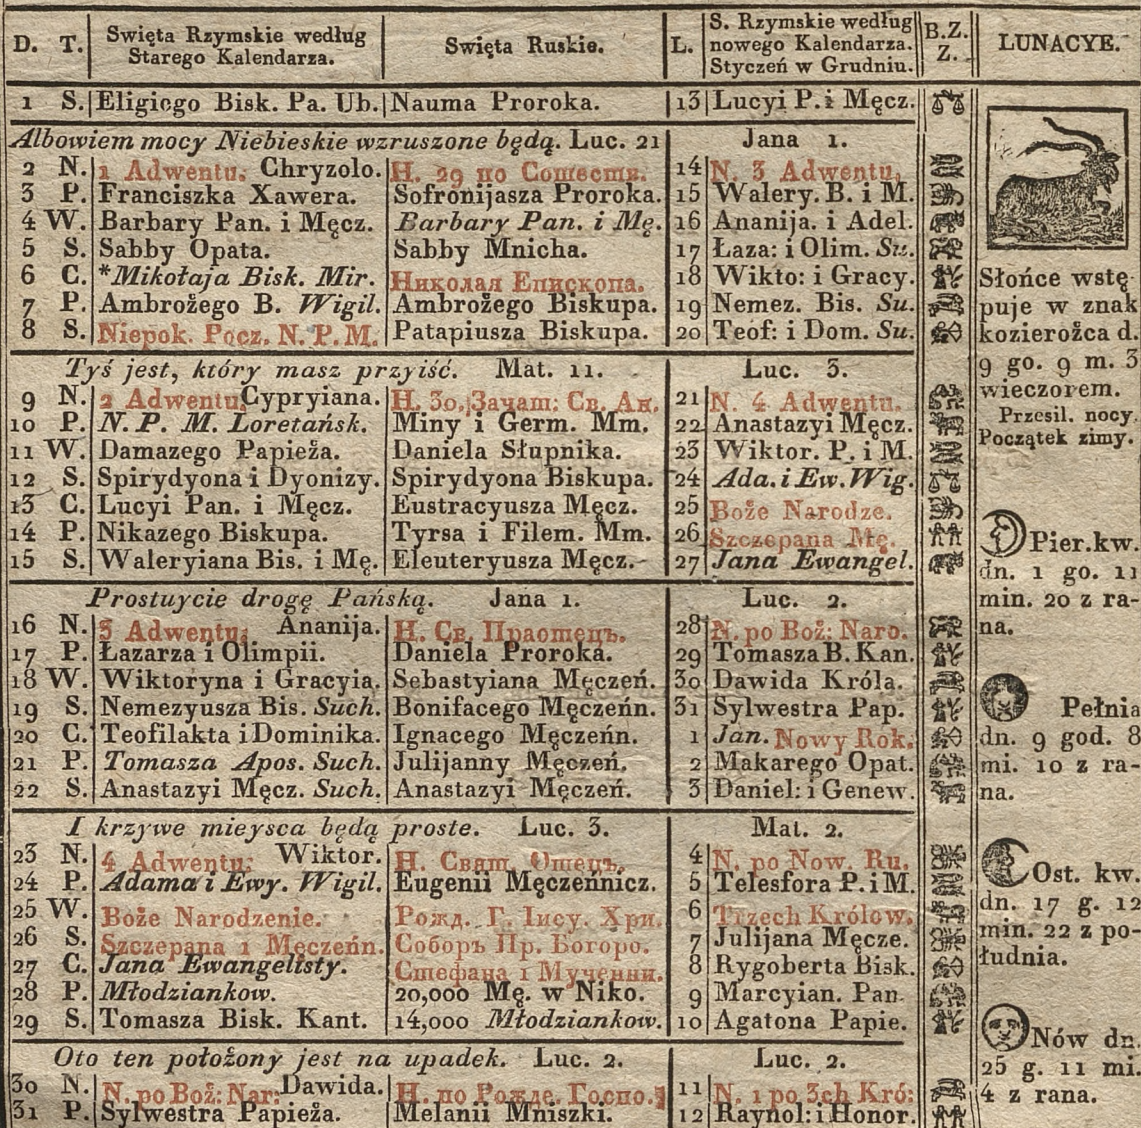 D. T. Swięta Rzymskie według Starego Kalendarza. Swięta Ruskie. L. S. Rzymskie według nowego Kalendarza. Styczeń w Grudniu. B.Z. Z. LUNACYE.
1 S. Eligiego Bisk. Pa. Ub. Nauma Proroka. 13 Lucyi P. i Męcz.
Albowiem mocy Niebieskie wzruszone będą. Luc. 21 Jana 1.
2 N. 1 Adwentu. Chryzolo. Н. 29 по Сошеств. 14 N. 3 Adwentu.
3 P. Franciszka Xawera. Sofronijasza Proroka. 15 Walery. B. i M.
4 W. Barbary Pan. i Męcz. Barbary Pan. i Mę. 16 Ananija. i Adel.
5 S. Sabby Opata. Sabby Mnicha. 17 Łaza: i Olim. Su.
6 C. *Mikołaja Bisk. Mir. Николая Епископа. 18 Wikto: i Gracy.
7 P. Ambrożego B. Wigil. Ambrożego Biskupa. 19 Nemez. Bis. Su.
8 S. Niepok. Pocz. N. P. M. Patapiusza Biskupa. 20 Teof: i Dom. Su.
Tyś jest, który masz przyiść. Mat. 11. Luc. 3.
9 N. 2 Adwentu. Cypryiana. Н. 30. Зачат: Св. Ан. 21 N. 4 Adwentu.
10 P. N. P. M. Loretańsk. Miny i Germ. Mm. 22 Anastazyi Męcz.
11 W. Damazego Papieża. Daniela Słupnika. 23 Wiktor. P. i M.
12 S. Spirydyona i Dyonizy. Spirydyona Biskupa. 24 Ada. i Ew. Wig.
13 C. Lucyi Pan. i Męcz. Eustracyusza Męcz. 25 Boże Narodze.
14 P. Nikazego Biskupa. Tyrsa i Filem. Mm. 26 Szczepana Mę.
15 S. Waleryiana Bis. i Mę. Eleuteryusza Męcz. 27 Jana Ewangel.
Prostuycie drogę Pańską. Jana 1. Luc. 2.
16 N. 3 Adwentu. Ananija. Н. Св. Праотецъ. 28 N. po Boż: Naro.
17 P. Łazarza i Olimpii. Daniela Proroka. 29 Tomasza B. Kan.
18 W. Wiktoryna i Gracyia. Sebastyiana Męczeń. 30 Dawida Króla.
19 S. Nemezyusza Bis. Such. Bonifacego Męczeńn. 31 Sylwestra Pap.
20 C. Teofilakta i Dominika. Ignacego Męczeńn. 1 Jan. Nowy Rok.
21 P. Tomasza Apos. Such. Julijanny Męczeń. 2 Makarego Opat.
22 S. Anastazyi Męcz. Such. Anastazyi Męczeń. 3 Daniel: i Genew.
I krzywe mieysca będą proste. Luc. 3. Mat. 2.
23 N. 4 Adwentu. Wiktor. Н. Свят. Отецъ. 4 N. po Now. Ru.
24 P. Adama i Ewy. Wigil. Eugenii Męczeńnicz. 5 Telesfora P. i M.
25 W. Boże Narodzenie. Рожд. Г. Іису. Хри. 6 Trzech Królow.
26 S. Szczepana 1 Męczeńn. Соборъ Пр. Богоро. 7 Julijana Męcze.
27 C. Jana Ewangelisty. Стефана 1 Мученни. 8 Rygoberta Bisk.
28 P. Młodziankow. 20,000 Mę. w Niko. 9 Marcyian. Pan
29 S. Tomasza Bisk. Kant. 14,000 Młodziankow. 10 Agatona Papie.
Oto ten położony jest na upadek. Luc. 2. Luc. 2.
30 N. N. po Boż: Nar: Dawida. Н. по Рожде. Госпо. 11 N. 1 po 3ch Kró:
31 P. Sylwestra Papieża. Melanii Mniszki. 12 Raynol: i Honor.
Słońce wstę-
puje w znak
kozierożca d.
9 go. 9 m. 3
wieczorem.
Przesil. nocy.
Początek zimy.
Pier. kw.
dn. 1 go. 11
min. 20 z ra-
na.
Pełnia
dn. 9 god. 8
mi. 10 z ra-
na.
Ost. kw.
dn. 17 g. 12
min. 22 z po-
łudnia.
Nów dn.
25 g. 11 mi.
4 z rana.